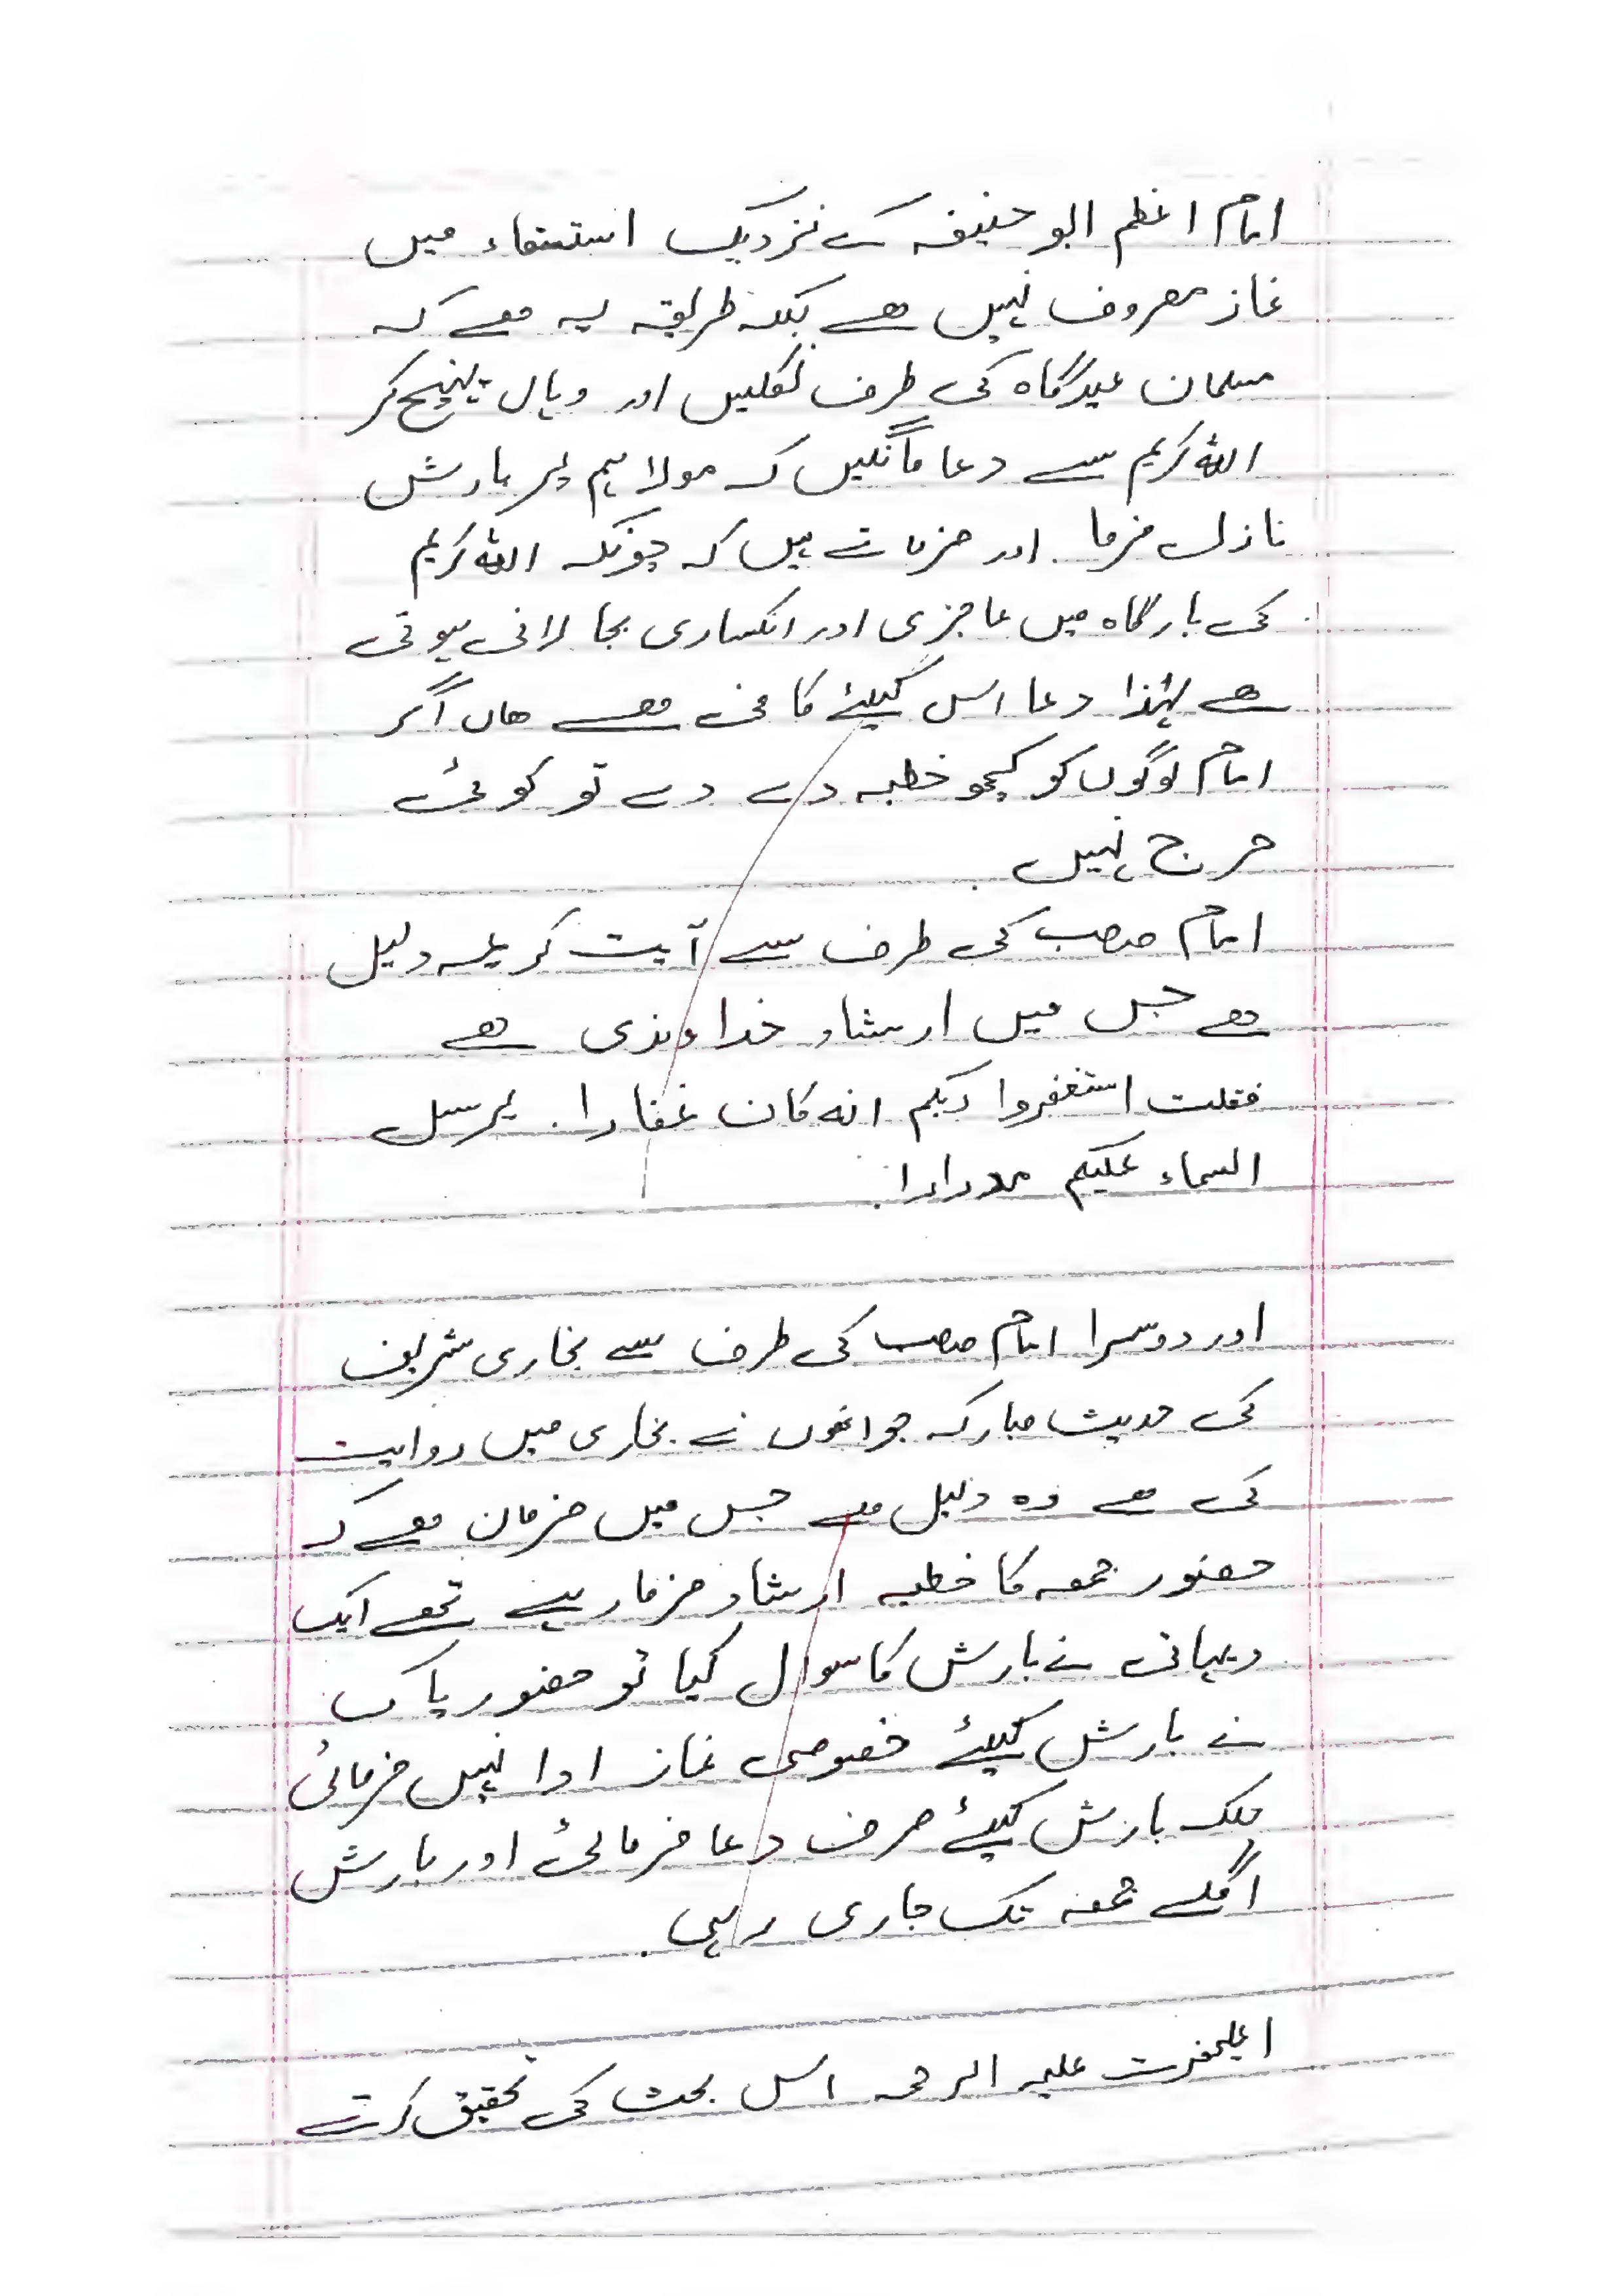 امام اعظم ابو حنیفہ کے نزدیک استسقاء میں
نماز معروف نہیں ہے بلکہ طریقہ یہ ہے کہ
مسلمان عیدگاہ کی طرف نکلیں اور وہاں پہنچ کر
اللہ کریم سے دعا مانگیں کہ مولا ہم پر بارش
نازل فرما اور فرماتے ہیں کہ چونکہ اللہ کریم
کی بارگاہ میں عاجزی اور انکساری بجا لانی ہوتی
ہے لہٰذا دعا اس کیلئے کافی ہے ھاں اگر
امام لوگوں کو کچھ خطبہ دے دے تو کوئی
حرج نہیں۔
امام صاحب کی طرف سے آیت کریمہ دلیل
ہے جس میں ارشاد خداوندی ہے
فقلت استغفروا ربکم انہ کان غفارا۔ یرسل
السماء علیکم مدرارا۔
اور دوسرا امام صاحب کی طرف سے بخاری شریف
کی حدیث مبارکہ جو انھوں نے بخاری میں روایت
کی ہے وہ دلیل ہے جس میں فرمان ہے کہ
حضور جمعہ کا خطبہ ارشاد فرما رہے تھے ایک
دیہاتی نے بارش کا سوال کیا تو حضور پاک
نے بارش کیلئے خصوصی نماز ادا نہیں فرمائی
بلکہ بارش کیلئے صرف دعا فرمائی اور بارش
اگلے جمعہ تک جاری رہی۔
اعلیحضرت علیہ الرحمہ اس بحث کی تحقیق کرتے